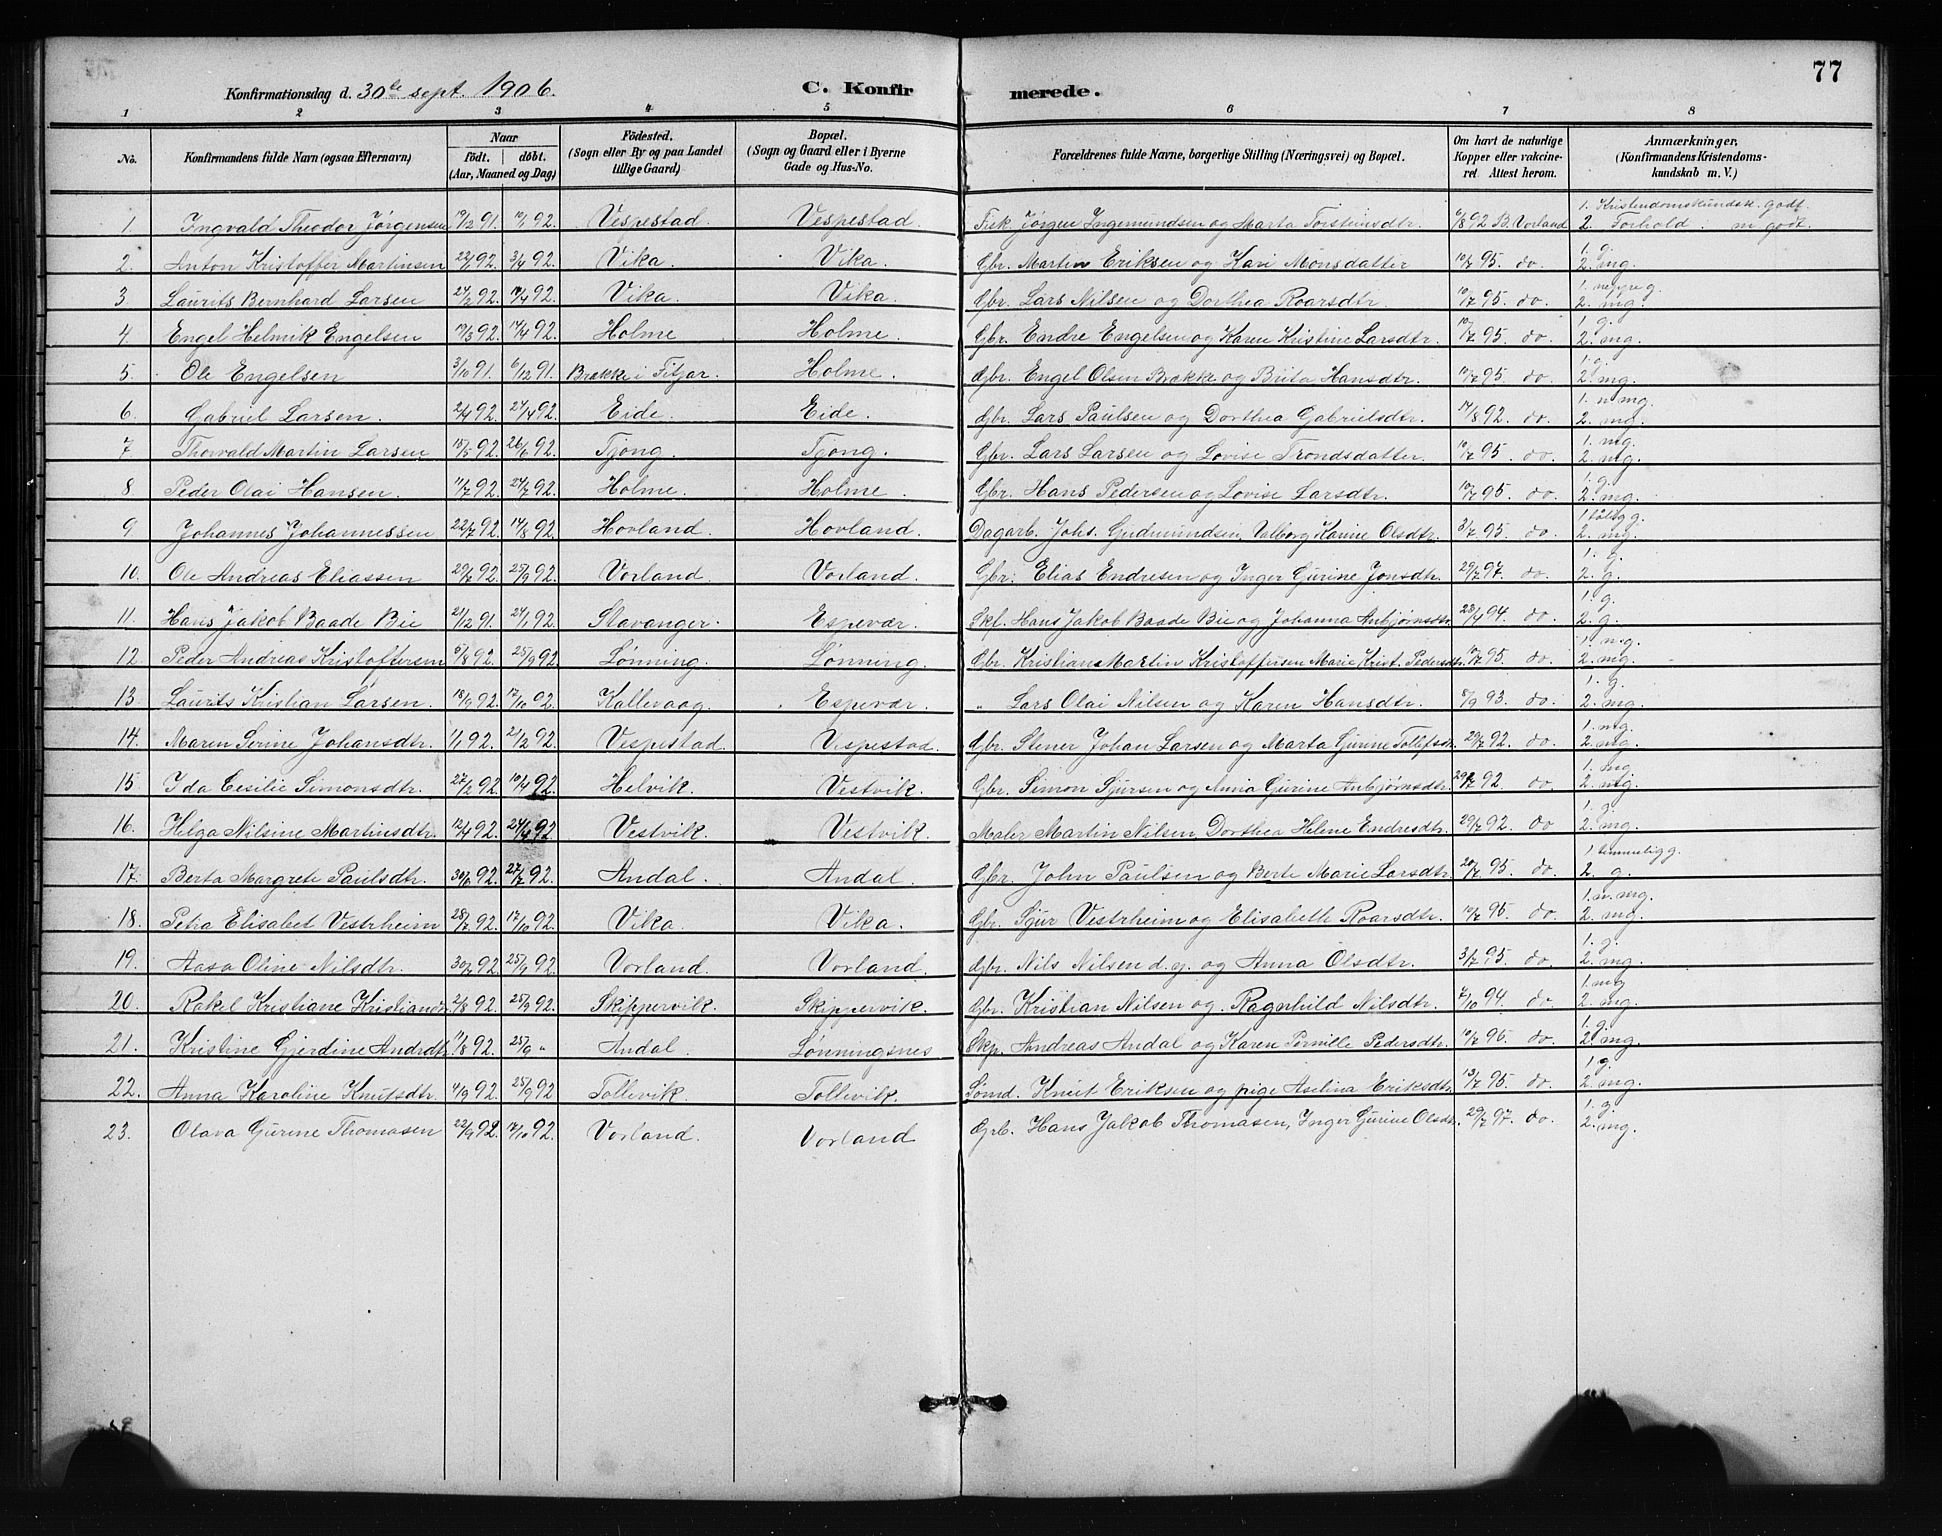 77
Konfirmationsdag d. 30te sept. 1906. C. Konfirmerede.
1 2 3 4 5 6 7 8
No. Konfirmandens fulde Navn (ogsaa Efternavn) Naar födt. döbt. (Aar, Maaned og Dag) Födested. (Sogn eller By og paa Landet tillige Gaard) Bopæl. (Sogn og Gaard eller i Byerne Gade og Hus-No. Forældrenes fulde Navne, borgerlige Stilling (Næringsvei) og Bopæl. Om havt de naturlige Kopper eller vakcineret. Attest herom. Anmærkninger, (Konfirmandens Kristendomskundskab m. V.)
1. Ingvald Theodor Jørgensen 19/12 91. 10/1 92. Vespestad. Vespestad. Fisk. Jørgen Ingemundsen og Marta Torstinsdtr. 6/8 92 B. Vorland 1. Kristendomskundsk. godt. 2. Forhold. m godt.
2. Anton Kristoffer Martinsen 22/1 92. 3/4 92. Vika. Vika. Gbr. Martin Eriksen og Kari Monsdatter 10/7 95. do. 1. g. 2. mg.
3. Laurits Bernhard Larsen 27/2 92. 18/4 92. Vika. Vika. Gbr. Lars Nilsen og Dorthea Roarsdtr. 10/7 95. do. 1. g. 2. mg.
4. Engel Helmik Engelsen 19/3 92. 17/4 92. Holme Holme. Gbr. Endre Engelsen og Karen Kristine Larsdtr. 10/7 95. do. 1. g. 2. mg.
5. Ole Engelsen 3/10 91. 6/12 91. Brække i Fitjar. Holme. Gbr. Engel Olsen Brække og Brita Hansdtr. 10/7 95. do. 1. g. 2. mg.
6. Gabriel Larsen. 2/4 92. 27/4 92. Eide. Eide. Gbr. Lars Paulsen og Dorthea Gabrielsdtr. 17/8 92. do. 1. n mg. 2. mg.
7 Thorvald Martin Larsen 15/5 92. 26/6 92. Tjong. Tjong. Gbr. Lars Larsen og Lovise Trondsdatter. 10/7 95. do. 1. mg. 2. mg.
8 Peder Olai Hansen. 11/7 92. 24/7 92. Holme. Holme. Gbr. Hans Pedersen og Lovise Larsdtr. 10/7 95. do 1. g. 2. mg.
9 Johannes Johannessen 22/7 92. 14/8 92. Hovland. Hovland. Dagarb. Johs. Gudmundsen, Valborg Karine Olsdtr. 3/7 95. do. 1. g. 2. mg.
10. Ole Andreas Eliassen 29/7 92. 25/9 92. Vorland. Vorland. Gbr. Elias Endresen og Inger Gurine Jonsdtr. 29/7 97. do. 1. g. 2. g.
11. Hans Jakob Baade Bie 21/12 91. 24/1 92. Stavanger. Espevær. Skf. Hans Jakob Baade Bie og Johanna Anbjørnsdtr. 94. do. 1. g. 2. g.
12. Peder Andreas Kristoffersen 5/8 92. 25/9 92. Lønning. Lønning. Gbr. Kristian Martin Kristoffersen Marie Krist. Pedersdtr. 10/7 95. do. 1. n. g. 2. mg.
13. Laurits Kristian Larsen. 18/9 92. 17/10 92. Kallevaag. Espevær. " Lars Olai Nilsen og Karen Hansdtr. 8/9 93. do. 1. g. 2. mg.
14. Maren Serine Johansdtr. 1/1 92. 21/2 92. Vespestad. Vespestad. Gbr. Stener Johan Larsen og Marta Gurine Tollefsdtr. 29/7 92. do. 1. mg. 2. mg.
15. Ida Cesilie Simonsdtr. 27/2 92. 10/4 92. Helvik. Vestvik. Gbr. Simon Sjursen og Anna Gurine Anbjørnsdtr. 92. do. 1. mg. 2. mg.
16. Helga Nilsine Martinsdtr. 12/4 92. 24/4 92 Vestvik. Vestvik. Maler Martin Nilsen, Dorthea Helene Endresdtr. 29/7 92. do 1. g. 2. mg.
17. Berta Margrete Paulsdtr. 30/6 92. 27/7 92. Andal. Andal. Gbr. John Paulsen og Berte Marie Larsdtr. 20/7 95. do. 1 temmelig g. 2. g.
18. Petra Elisabet Vestrheim 28/7 92. 17/10 92. Vika. Vika. Gbr. Sjur Vestrheim og Elisabeth Roarsdtr. 10/7 95. do. 1. n. mg. 2. mg.
19. Aasa Oline Nilsdtr. 30/7 92. 25/9 92. Vorland. Vorland. Gbr. Nils Nilsen d. y. og Anna Olsdtr. 3/7 95. do. 1. g. 2. mg.
20. Rakel Kristiane Kristiansdtr 2/8 92. 25/9 92. Skippervik. Skippervik. Gbr. Kristian Nilsen og Ragnhild Nilsdtr. 7/10 94. do. 1. mg 2. mg.
21. Kristine Gjerdine Andrdtr. 11/8 92. 25/9 " Andal. Lønningsnes Skp. Andreas Andal og Karen Pernille Pedersdtr. 10/7 96. do. 1. g. 2. mg.
22. Anna Karoline Knutsdtr. 4/9 92. 25/9 92 Tollevik. Tollevik. Sømd. Knut Eriksen og pige Aselina Eriksdtr. 13/7 95. do. 1. g. 2. mg.
23. Olava Gurine Thomasen 22/9 92. 17/10 92. Vorland. Vorland Grb. Hans Jakob Thomasen, Inger Gurine Olsdtr. 29/7 97. do. 1. g. 2. mg.